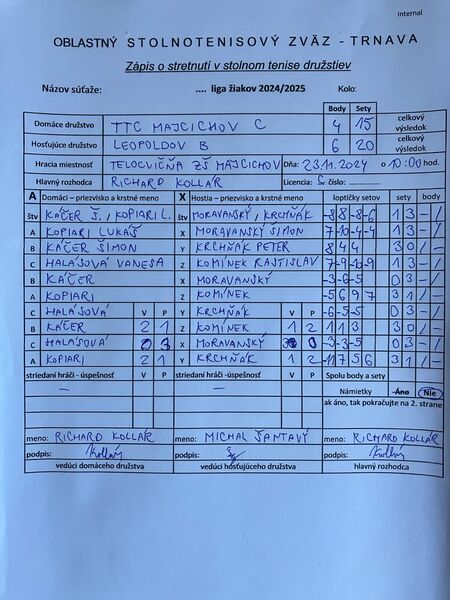 Internal
OBLASTNÝ STOLNOTENISOVÝ ZVÄZ - TRNAVA
Zápis o stretnutí v stolnom tenise družstiev
Názov súťaže: .... liga žiakov 2024/2025 Kolo:
Body Sety
Domáce družstvo TTC MAJCICHOV C 4 15 celkový výsledok
Hosťujúce družstvo LEOPOLDOV B 6 20 celkový výsledok
Hracia miestnosť TELOCVIČŇA ZŠ MAJCICHOV Dňa: 23.11.2024 o 10:00 hod.
Hlavný rozhodca RICHARD KOLLÁR Licencia: číslo:
A Domáci – priezvisko a krstné meno X Hostia – priezvisko a krstné meno loptičky setov sety body
štv KÁČER Š., KOPIARI L. štv MORAVANSKÝ, KRCHŇÁK -8 8 -8 -6 1 3 - /
A KOPIARI LUKÁŠ X MORAVANSKÝ SIMON 1 3 - /
B KÁČER ŠIMON Y KRCHŇÁK PETER 8 4 4 3 0 / -
C HALÁSOVÁ VANESA Z KOMÍNEK RASTISLAV 1 3 - /
B KÁČER X MORAVANSKÝ -3 -6 -5 0 3 - /
A KOPIARI Z KOMÍNEK -5 6 9 7 3 1 / -
C HALÁSOVÁ V P Y KRCHŇÁK V P -6 -5 -5 0 3 - /
B KÁČER 2 1 Z KOMÍNEK 1 2 11 1 3 3 0 / -
C HALÁSOVÁ 0 3 X MORAVANSKÝ 3 0 -3 -3 -5 0 3 - /
A KOPIARI 2 1 Y KRCHŇÁK 1 2 3 1 / -
striedaní hráči - úspešnosť V P striedaní hráči - úspešnosť V P Spolu body a sety
– – Námietky Áno Nie
ak áno, tak pokračujte na 2. strane
meno: RICHARD KOLLÁR meno: MICHAL ŠANTAVÝ meno: RICHARD KOLLÁR
podpis: Kollár podpis: podpis: Kollár
vedúci domáceho družstva vedúci hosťujúceho družstva hlavný rozhodca